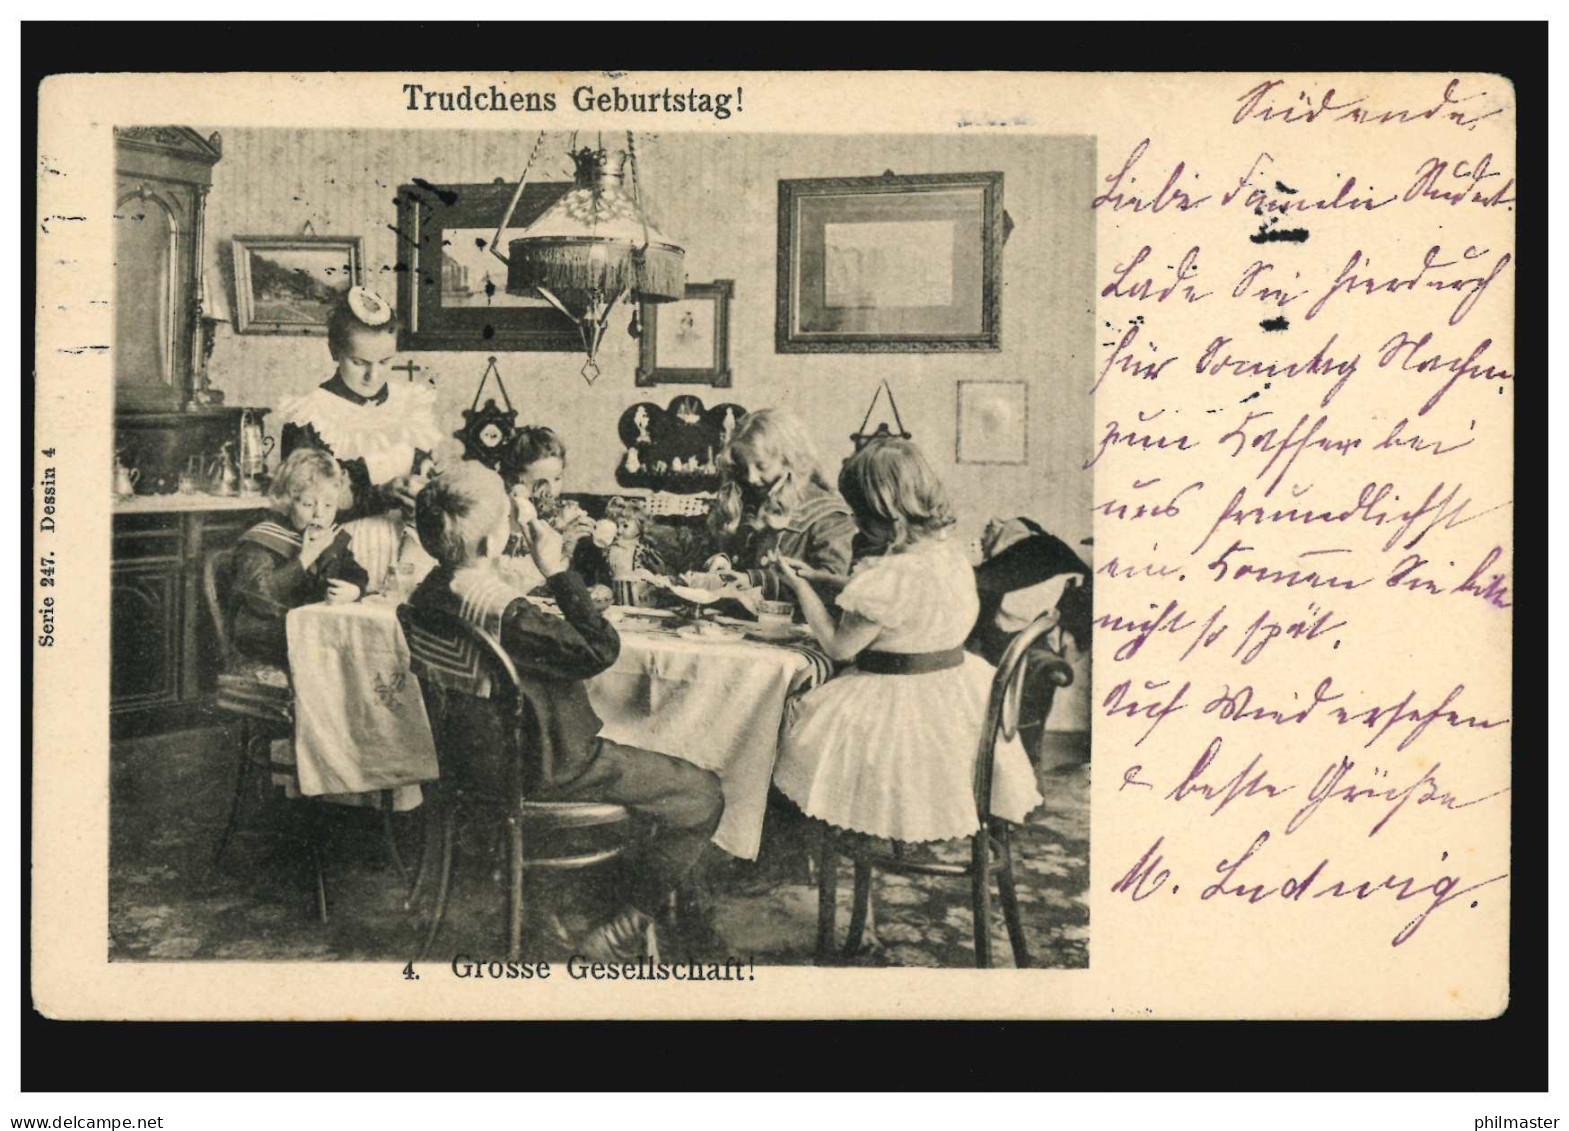 Trudchens Geburtstag!
Serie 247. Dessin 4
4. Grosse Gesellschaft!
Südende,
Liebe Familie
Lade Sie hierdurch
für Sonntag Nachm.
zum Kaffee bei
uns freundlichst
ein. Kom̄en Sie bitte
nicht so spät.
Auf Wiedersehen
& beste Grüße
M. Ludwig.
www.delcampe.net
philmaster